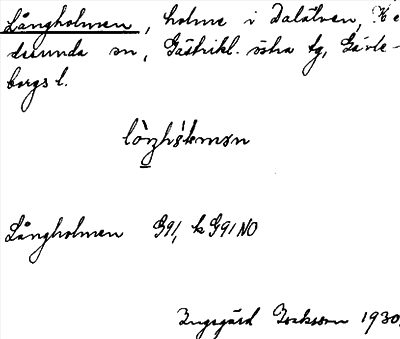 Långholmen, holme i Dalälven, He-
desunda sn, Gästrikl. östra tg, Gävle-
borgs l.
Långholmen G91, k G91 NO
Ingegärd Isaksson 1930.